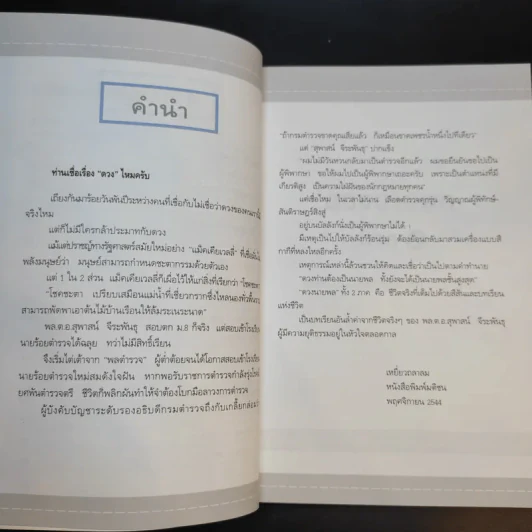 คำนำ
ท่านเชื่อเรื่อง "ดวง" ไหมครับ
เถียงกันมาร้อยวันพันปีระหว่างคนที่เชื่อกับไม่เชื่อว่าดวงของคนเรานั้น
จริงไหม
แต่ก็ไม่มีใครกล้าประมาทกับดวง
แม้แต่ปราชญ์ทางรัฐศาสตร์สมัยใหม่อย่าง "แม็คเคียเวลลี" ที่เชื่อมั่นใน
พลังมนุษย์ว่า มนุษย์สามารถกำหนดชะตากรรมด้วยตัวเอง
แต่ 1 ใน 2 ส่วน แม็คเคียเวลลีก็เผื่อไว้ให้แก่สิ่งที่เรียกว่า "โชคชะตา"
"โชคชะตา เปรียบเสมือนแม่น้ำที่เชี่ยวกรากซึ่งไหลนองทั่วพื้นที่
สามารถพัดพาเอาต้นไม้บ้านเรือนให้ล้มระเนระนาด"
พล.ต.อ.สุพาสน์ จีระพันธุ สอบตก ม.8 ก็จริง แต่สอบเข้าโรงเรียน
นายร้อยตำรวจได้ฉลุย ทว่าไม่มีสิทธิ์เรียน
จึงเริ่มไต่เต้าจาก "พลตำรวจ" ผู้ต่ำต้อยจนได้โอกาสสอบเข้าโรงเรียน
นายร้อยตำรวจใหม่สมดังใจฝัน หากพอรับราชการตำรวจกำลังรุ่งโรจน์
ยศพันตำรวจตรี ชีวิตก็พลิกผันทำให้จำต้องโบกมือลาวงการตำรวจ
ผู้บังคับบัญชาระดับรองอธิบดีกรมตำรวจถึงกับเกลี้ยกล่อมว่า
"ถ้ากรมตำรวจขาดคุณเสียแล้ว ก็เหมือนขาดเพชรน้ำหนึ่งไปทีเดียว"
แต่ "สุพาสน์ จีระพันธุ" ปากแข็ง
"ผมไม่มีวันหวนกลับมาเป็นตำรวจอีกแล้ว ผมขอยืนยันขอไปเป็น
ผู้พิพากษา ขอให้ผมไปเป็นผู้พิพากษาเถอะครับ เพราะเป็นตำแหน่งที่มี
เกียรติสูง เป็นความใฝ่ฝันของนักกฎหมายทุกคน"
แต่เชื่อไหม ในเวลาไม่นาน เลือดตำรวจคุกรุ่น วิญญาณผู้พิทักษ์-
สันติราษฎร์สิงสู่
อยู่บนบัลลังก์นั่งเป็นผู้พิพากษาไม่ได้ !
มีเหตุเป็นไปให้บัลลังก์ร้อนรุ่ม ต้องย้อนกลับมาสวมเครื่องแบบสี
กากีที่หลงใหลอีกครั้ง
เหตุการณ์เหล่านี้ล้วนชวนให้คิดและเชื่อว่าเป็นไปตามคำทำนาย
"ดวงท่านต้องเป็นนายพล ทั้งยังจะได้เป็นนายพลชั้นสูงสุด"
"ดวงนายพล" ทั้ง 2 ภาค คือ ชีวิตจริงที่เต็มไปด้วยสีสันและบทเรียน
แห่งชีวิต
เป็นบทเรียนอันล้ำค่าจากชีวิตจริงๆ ของ พล.ต.อ.สุพาสน์ จีระพันธุ
ผู้มีความยุติธรรมอยู่ในหัวใจตลอดกาล
เหยี่ยวถลาลม
หนังสือพิมพ์มติชน
พฤศจิกายน 2544